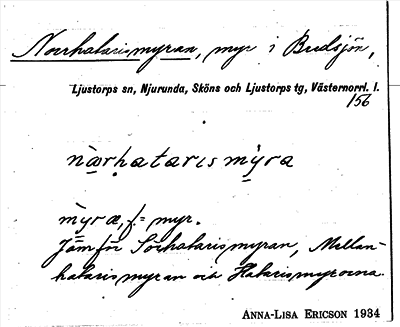 Norrhatarismyran, myr i Budsjön,
Ljustorps sn, Njurunda, Sköns och Ljustorps tg, Västernorrl. l.
156
nàrhatarismýra
m̀yræ, f. = myr.
Jämför Sörhatarismyran, Mellan-
hatarismyran och Hatarismyrorna.
ANNA-LISA ERICSON 1934